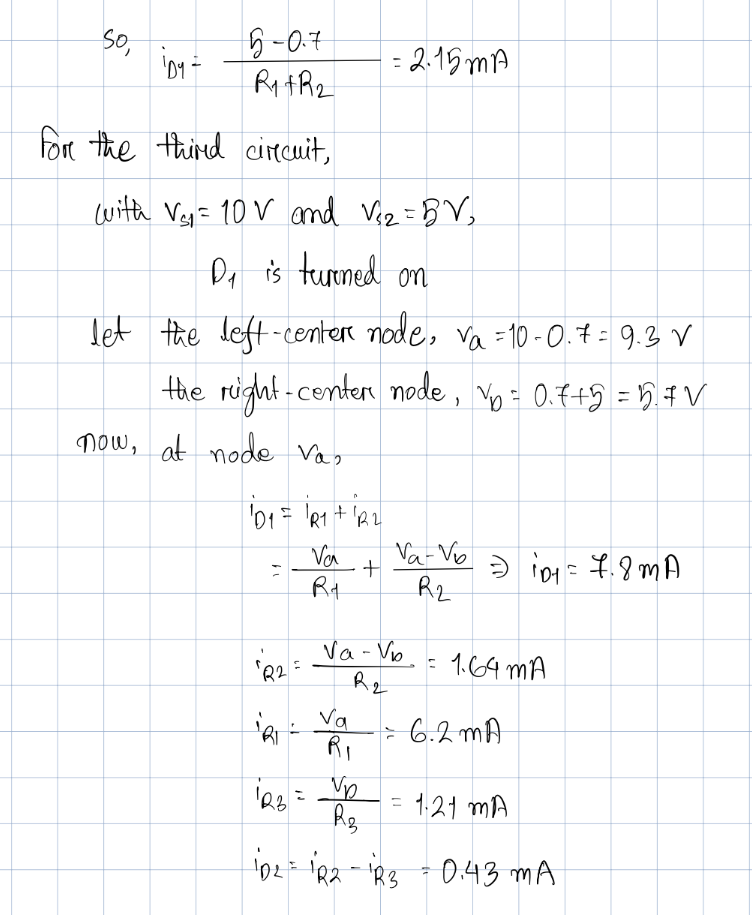 So, i_D1 = (5 - 0.7) / (R1 + R2) = 2.15 mA
For the third circuit,
with V_S1 = 10 V and V_S2 = 5 V,
D1 is turned on
let the left-center node, Va = 10 - 0.7 = 9.3 V
the right-center node, Vb = 0.7 + 5 = 5.7 V
now, at node Va,
i_D1 = i_R1 + i_R2
= Va / R1 + (Va - Vb) / R2 ⇒ i_D1 = 7.8 mA
i_R2 = (Va - Vb) / R2 = 1.64 mA
i_R1 = Va / R1 = 6.2 mA
i_R3 = Vb / R3 = 1.21 mA
i_D2 = i_R2 - i_R3 = 0.43 mA